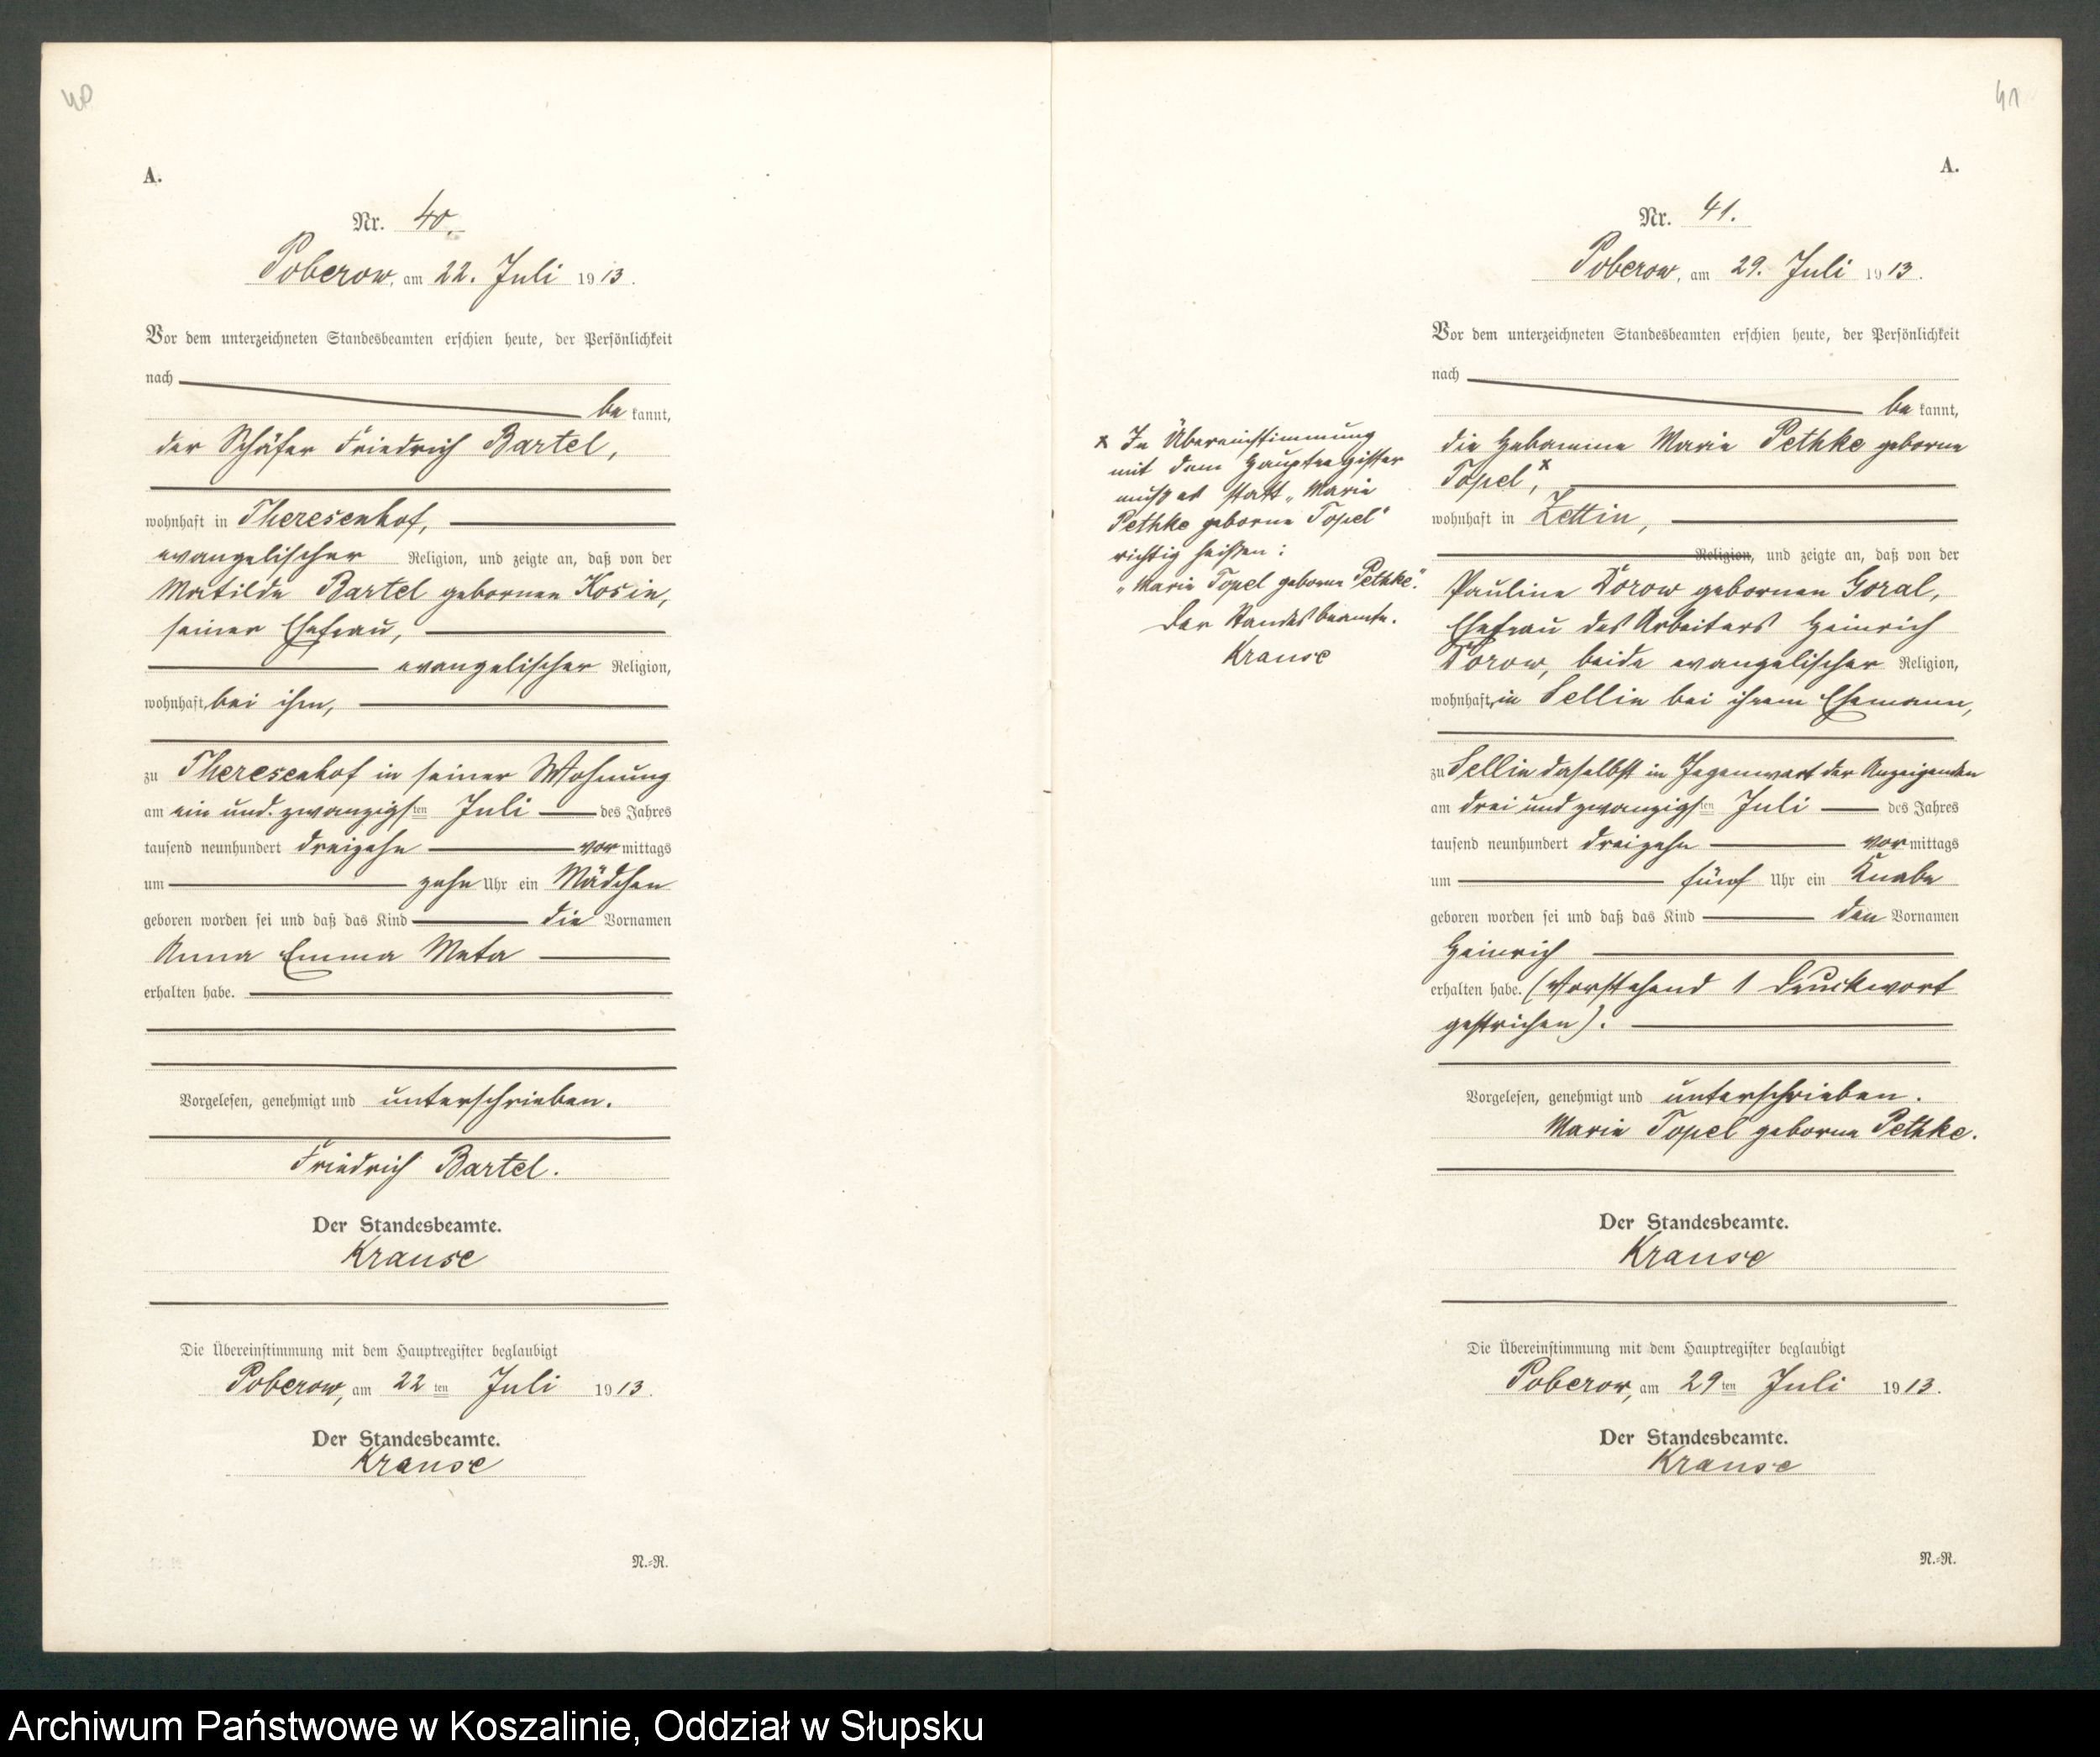 40
A.
Nr. 40.
Poberow, am 22. Juli 1913.
Vor dem unterzeichneten Standesbeamten erschien heute, der Persönlichkeit
nach
be kannt,
der Schäfer Friedrich Bartel,
wohnhaft in Theresenhof,
evangelischer Religion, und zeigte an, daß von der
Matilde Bartel gebornen Kosin,
seiner Ehefrau,
evangelischer Religion,
wohnhaft, bei ihm,
zu Theresenhof in seiner Wohnung
am ein und zwanzigsten Juli des Jahres
tausend neunhundert dreizehn vormittags
um zehn Uhr ein Mädchen
geboren worden sei und daß das Kind die Vornamen
Anna Emma Meta
erhalten habe.
Vorgelesen, genehmigt und unterschrieben.
Friedrich Bartel.
Der Standesbeamte.
Krause
Die Übereinstimmung mit dem Hauptregister beglaubigt
Poberow, am 22ten Juli 1913.
Der Standesbeamte.
Krause
N.-R.
41
A.
Nr. 41.
Poberow, am 29. Juli 1913.
Vor dem unterzeichneten Standesbeamten erschien heute, der Persönlichkeit
nach
be kannt,
die Hebamme Marie Pethke geborne
Topel,x
wohnhaft in Zettin,
Religion, und zeigte an, daß von der
Pauline Dorow gebornen Goral,
Ehefrau des Arbeiters Heinrich
Dorow, beide evangelischer Religion,
wohnhaft, in Sellin bei ihrem Ehemann,
zu Sellin daselbst in Gegenwart der Anzeigenden
am drei und zwanzigsten Juli des Jahres
tausend neunhundert dreizehn vormittags
um fünf Uhr ein Knabe
geboren worden sei und daß das Kind den Vornamen
Heinrich
erhalten habe. (Vorstehend 1 Druckwort
gestrichen).
Vorgelesen, genehmigt und unterschrieben.
Marie Topel geborne Pethke.
Der Standesbeamte.
Krause
Die Übereinstimmung mit dem Hauptregister beglaubigt
Poberow, am 29ten Juli 1913.
Der Standesbeamte.
Krause
N.-R.
x In Übereinstimmung
mit dem Hauptregister
muß es statt „Marie
Pethke geborne Topel"
richtig heißen:
„Marie Topel geborne Pethke".
Der Standesbeamte.
Krause
Archiwum Państwowe w Koszalinie, Oddział w Słupsku